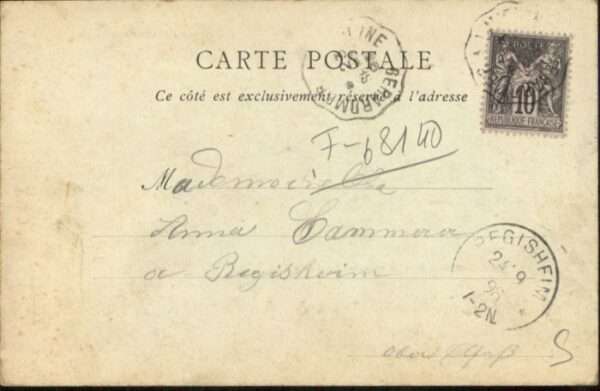 CARTE POSTALE
Ce côté est exclusivement réservé à l'adresse
POSTE
10
REPUBLIQUE FRANCAISE
F-68140
Mademoiselle
Anna Cammerer
a Regisheim
Ober Elsaß
REGISHEIM
24 9
1-2N.